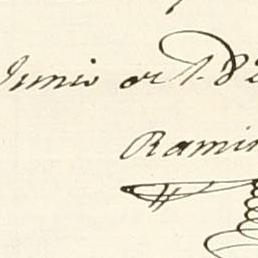 Junio de 182
Ramir